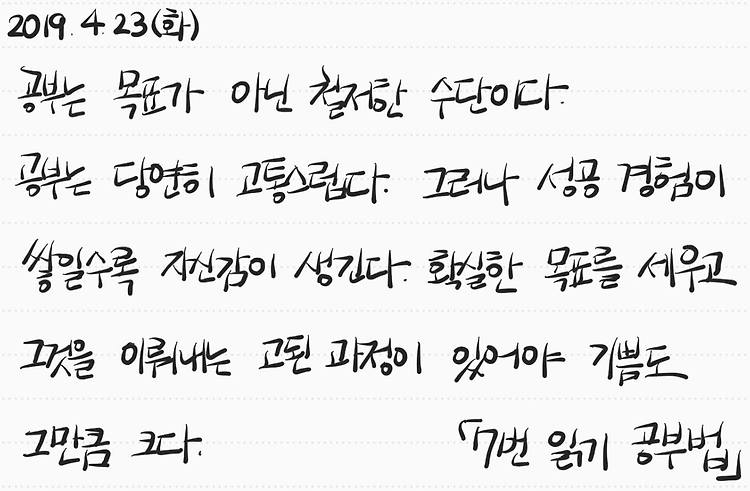 2019. 4. 23(화)
공부는 목표가 아닌 철저한 수단이다.
공부는 당연히 고통스럽다. 그러나 성공 경험이
쌓일수록 자신감이 생긴다. 확실한 목표를 세우고
그것을 이뤄내는 고된 과정이 있어야 기쁨도
그만큼 크다. 「7번 읽기 공부법」